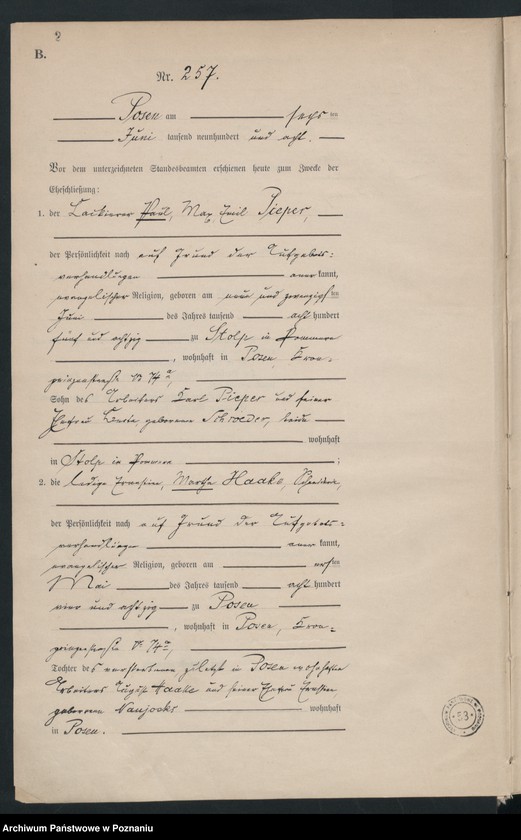 B.
Nr. 257.
Posen am sechs ten
Juni tausend neunhundert und acht.
Vor dem unterzeichneten Standesbeamten erschienen heute zum Zwecke der
Eheschließung:
1. der Lackierer Paul, Max, Emil Pieper,
der Persönlichkeit nach auf Grund der Aufgebots=
verhandlungen anerkannt,
evangelischer Religion, geboren am neun und zwanzigsten
Juni des Jahres tausend acht hundert
fünf und achtzig zu Stolp in Pommern
, wohnhaft in Posen, Kron=
prinzenstraße
Sohn des Arbeiters Karl Pieper und seiner
Ehefrau geborene Schroeder, beide
wohnhaft
in Stolp in Pommern ;
2. die ledige Martha Haake,
der Persönlichkeit nach auf Grund der Aufgebots=
verhandlungen anerkannt,
evangelischer Religion, geboren am ersten
Mai des Jahres tausend acht hundert
vier und achtzig zu Posen
, wohnhaft in Posen, Kron=
prinzenstraße
Tochter des verstorbenen zuletzt in Posen wohnhaften
Arbeiters August Haake und seiner Ehefrau
geborene wohnhaft
in Posen.
53
Archiwum Państwowe w Poznaniu